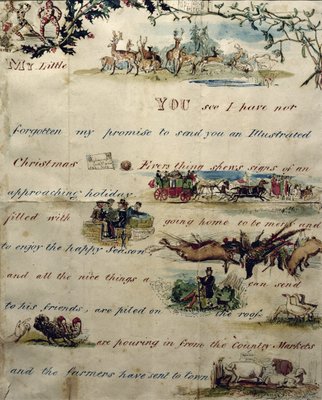 MY Little
YOU see I have not
forgotten my promise to send you an Illustrated
Christmas Every thing shews signs of an
approaching holiday
filled with going home to be merry and
to enjoy the happy Season
and all the nice things a can send
to his friends, are piled on the roof.
are pouring in from the Country Markets
and the farmers have sent to town